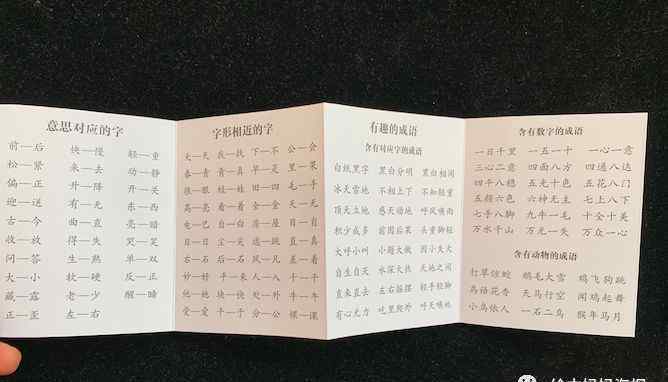 意思对应的字
前—后 快—慢 轻—重
松—紧 来—去 动—静
偏—正 升—降 开—关
迎—送 有—无 东—西
古—今 曲—直 亮—暗
收—放 得—失 哭—笑
问—答 生—熟 单—双
大—小 软—硬 反—正
藏—露 老—少 醒—睡
正—歪 左—右
字形相近的字
大—天 我—找 下—不 公—会
春—青 真—直 早—是 里—果
很—眼 娃—蛙 旧—四 毛—手
高—亮 看—着 金—全 天—无
电—己 自—白 目—自
日—目 尘—尖 送—跳 直—真
右—石 后—石 风—凤 着—差
妙—抄 平—来 人—八 十—千
他—她 块—快 处—外 牛—午
受—爱 干—于 分—公 棵—课
有趣的成语
含有对应字的成语
白纸黑字 黑白分明 黑白相间
冰天雪地 不相上下 不知轻重
顶天立地 感天动地 呼风唤雨
积少成多 前因后果 头重脚轻
大呼小叫 小题大做 因小失大
自生自灭 水深火热 天地之间
直来直去 左右摇摆 轻手轻脚
有心无力 吃里爬外 呼天唤地
含有数字的成语
一日千里 一五一十 一心一意
三心二意 四面八方 四通八达
四平八稳 五光十色 五花八门
五颜六色 六神无主 七上八下
七手八脚 九牛一毛 十全十美
万水千山 万无一失 万众一心
含有动物的成语
打草惊蛇 鹅毛大雪 鸡飞狗跳
鸟语花香 天马行空 闻鸡起舞
小鸟依人 一石二鸟 猴年马月